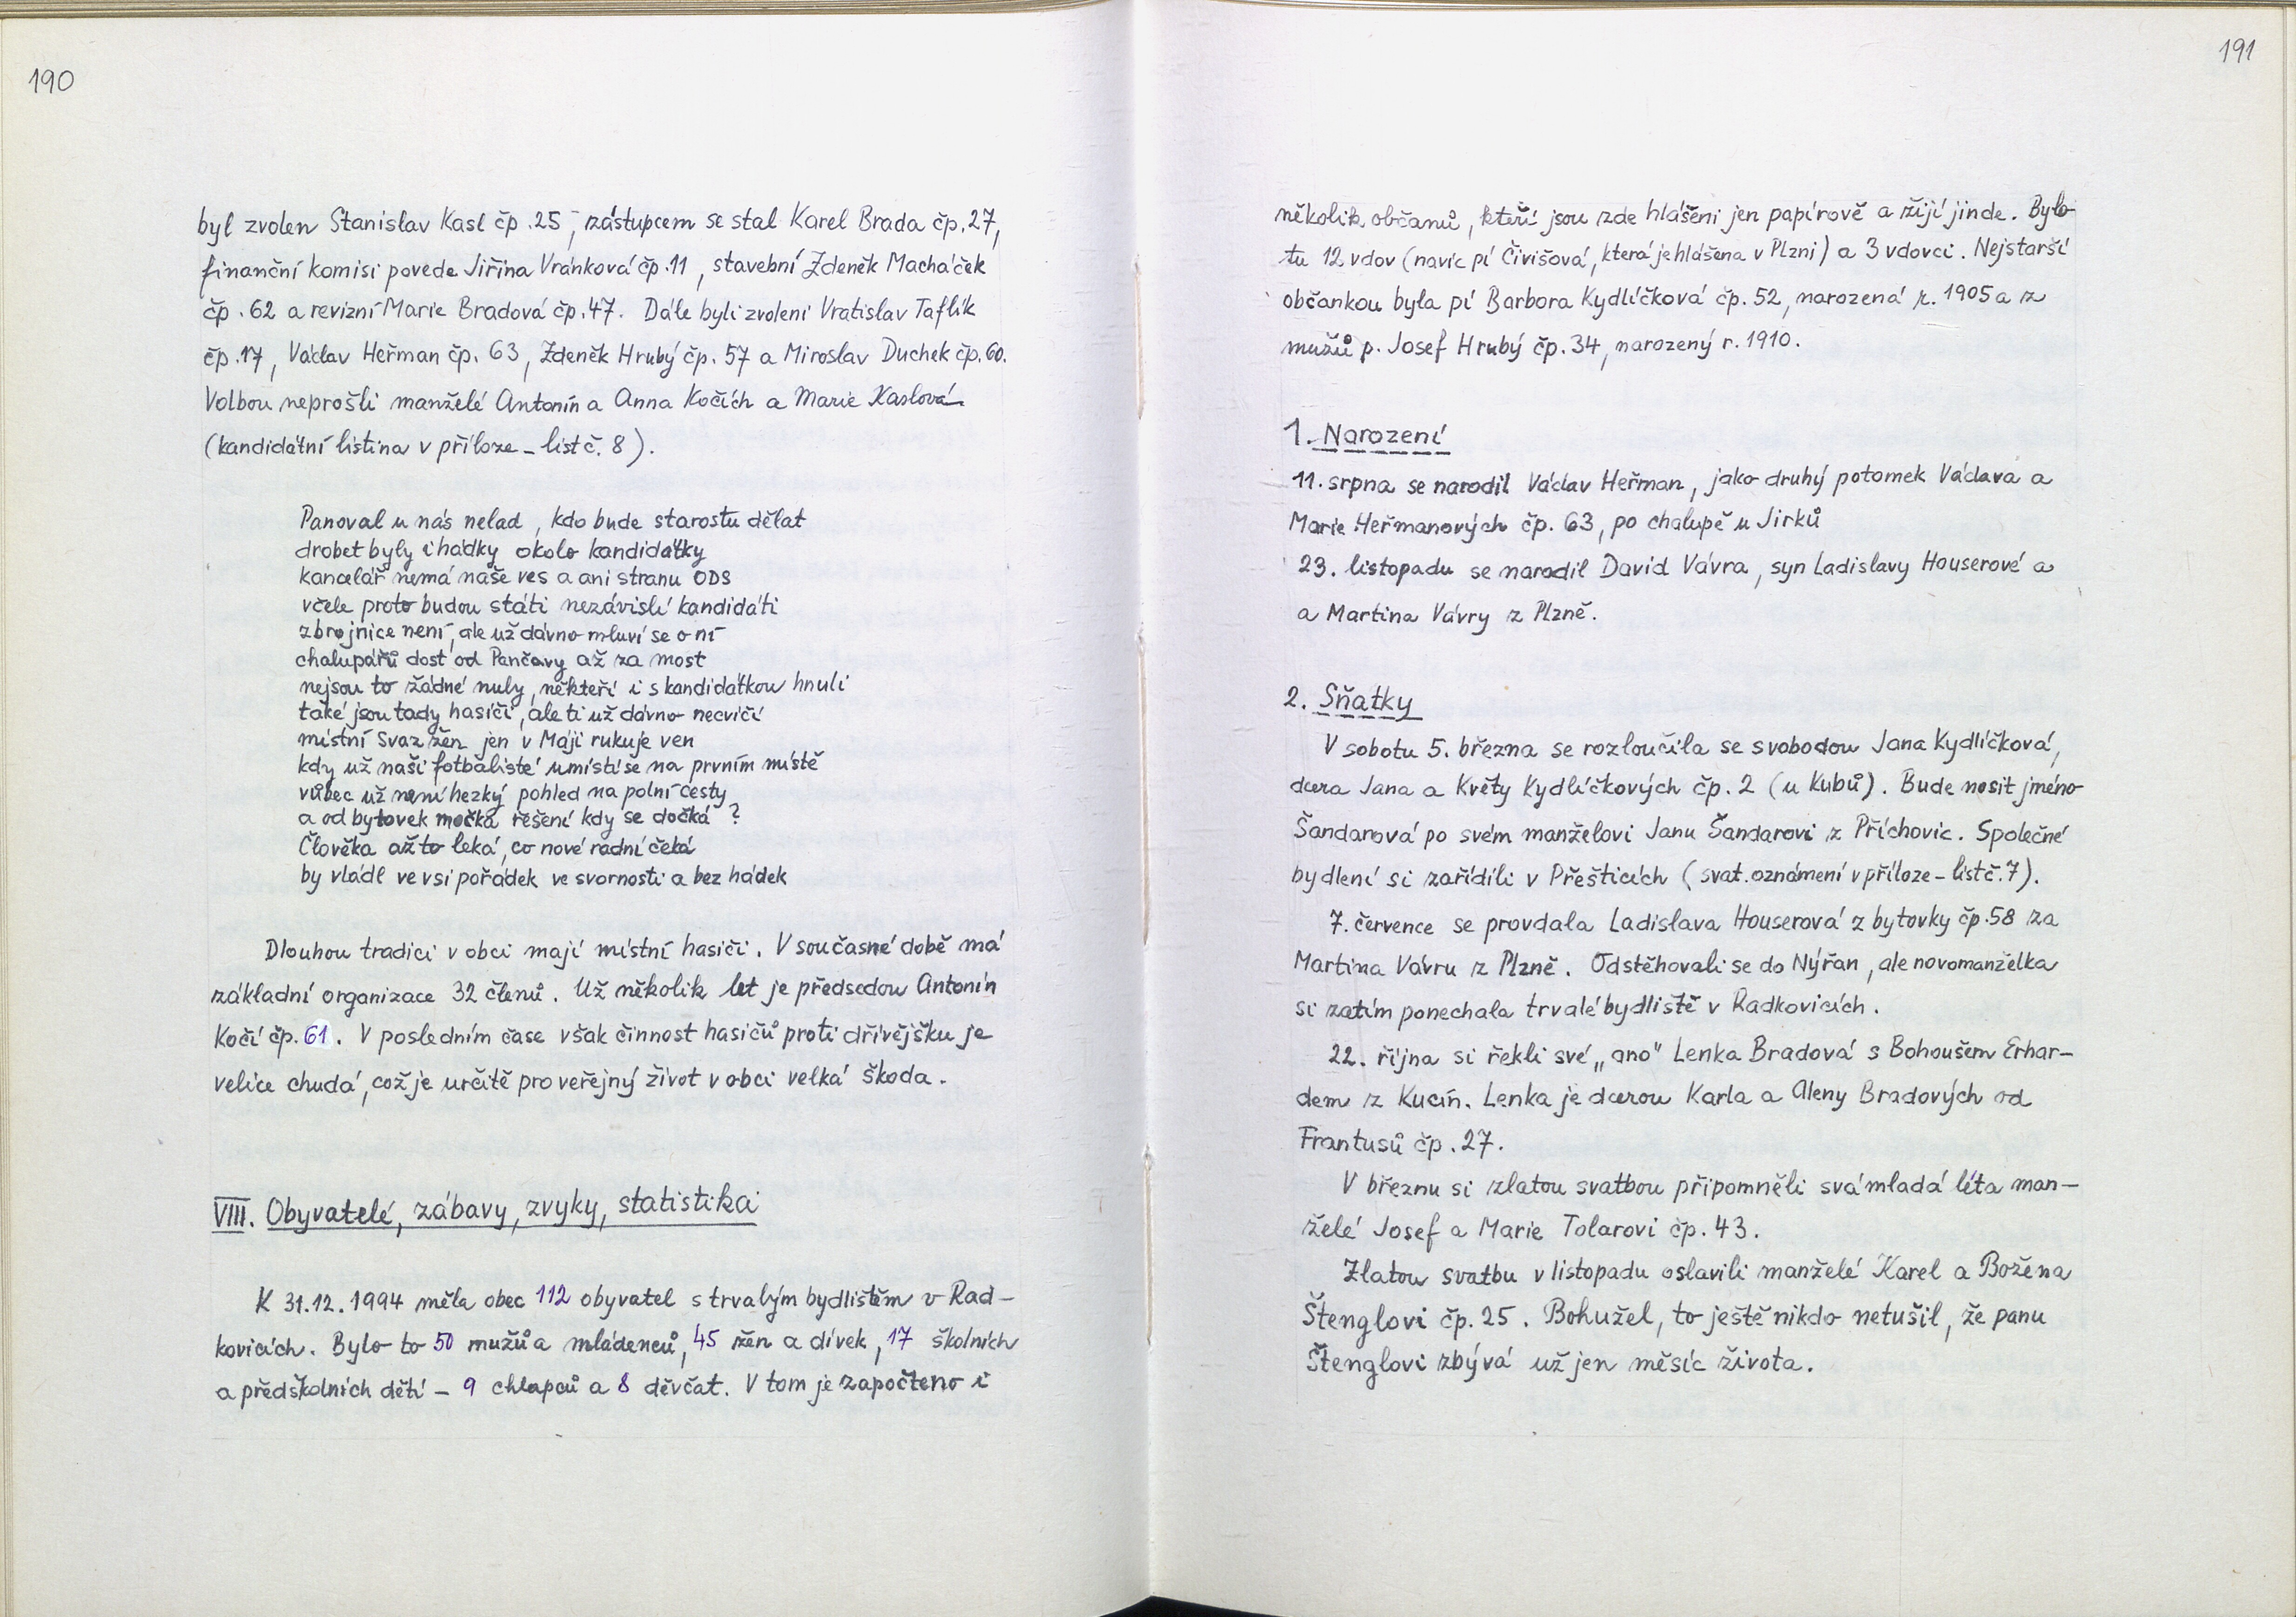 190
byl zvolen Stanislav Kasl čp. 25, zástupcem se stal Karel Brada čp. 27,
finanční komisi povede Jiřina Vránková čp. 11, stavební Zdeněk Macháček
čp. 62 a revizní Marie Bradová čp. 47. Dále byli zvoleni Vratislav Taflík
čp. 17, Václav Heřman čp. 63, Zdeněk Hrubý čp. 57 a Miroslav Duchek čp. 60.
Volbou neprošli manželé Antonín a Anna Kočích a Marie Kaslová
(kandidátní listina v příloze - list č. 8).
Panoval u nás nelad, kdo bude starostu dělat
drobet byly i hádky okolo kandidátky
kancelář nemá naše ves a ani stranu ODS
včele proto budou státi nezávislí kandidáti
zbrojnice není, ale už dávno mluví se o ní
chalupářů dost od Pančavy až za most
nejsou to žádné nuly, někteří i s kandidátkou hnuli
také jsou tady hasiči, ale ti už dávno necvičí
místní Svaz žen jen v Máji rukuje ven
kdy už naši fotbalisté umístí se na prvním místě
vůbec už není hezký pohled na polní cesty
a od bytovek močka řešení kdy se dočká?
Člověka až to leká, co nové radní čeká
by vládl ve vsi pořádek ve svornosti a bez hádek
Dlouhou tradici v obci mají místní hasiči. V současné době má
základní organizace 32 členů. Už několik let je předsedou Antonín
Kočí čp. 61. V posledním čase však činnost hasičů proti dřívějšku je
velice chudá, což je určitě pro veřejný život v obci velká škoda.
VIII. Obyvatelé, zábavy, zvyky, statistika
K 31.12.1994 měla obec 112 obyvatel s trvalým bydlištěm v Rad-
kovicích. Bylo to 50 mužů a mládenců, 45 žen a dívek, 17 školních
a předškolních dětí - 9 chlapců a 8 děvčat. V tom je započteno i
191
několik občanů, kteří jsou zde hlášeni jen papírově a žijí jinde. Bylo
tu 12 vdov (navíc pí Čivišová, která je hlášena v Plzni) a 3 vdovci. Nejstarší
občankou byla pí Barbora Kydlíčková čp. 52, narozená r. 1905 a z
mužů p. Josef Hrubý čp. 34, narozený r. 1910.
1. Narození
11. srpna se narodil Václav Heřman, jako druhý potomek Václava a
Marie Heřmanových čp. 63, po chalupě u Jirků
23. listopadu se narodil David Vávra, syn Ladislavy Houserové a
a Martina Vávry z Plzně.
2. Sňatky
V sobotu 5. března se rozloučila se svobodou Jana Kydlíčková,
dcera Jana a Květy Kydlíčkových čp. 2 (u Kubů). Bude nosit jméno
Šandarová po svém manželovi Janu Šandarovi z Příchovic. Společné
bydlení si zařídili v Přešticích (svat. oznámení v příloze - list č. 7).
7. července se provdala Ladislava Houserová z bytovky čp. 58 za
Martina Vávru z Plzně. Odstěhovali se do Nýřan, ale novomanželka
si zatím ponechala trvalé bydliště v Radkovicích.
22. října si řekli své „ano" Lenka Bradová s Bohoušem Erhar-
dem z Kucín. Lenka je dcerou Karla a Aleny Bradových od
Frantusů čp. 27.
V březnu si zlatou svatbou připomněli svá mladá léta man-
želé Josef a Marie Tolarovi čp. 43.
Zlatou svatbu v listopadu oslavili manželé Karel a Božena
Štenglovi čp. 25. Bohužel, to ještě nikdo netušil, že panu
Štenglovi zbývá už jen měsíc života.